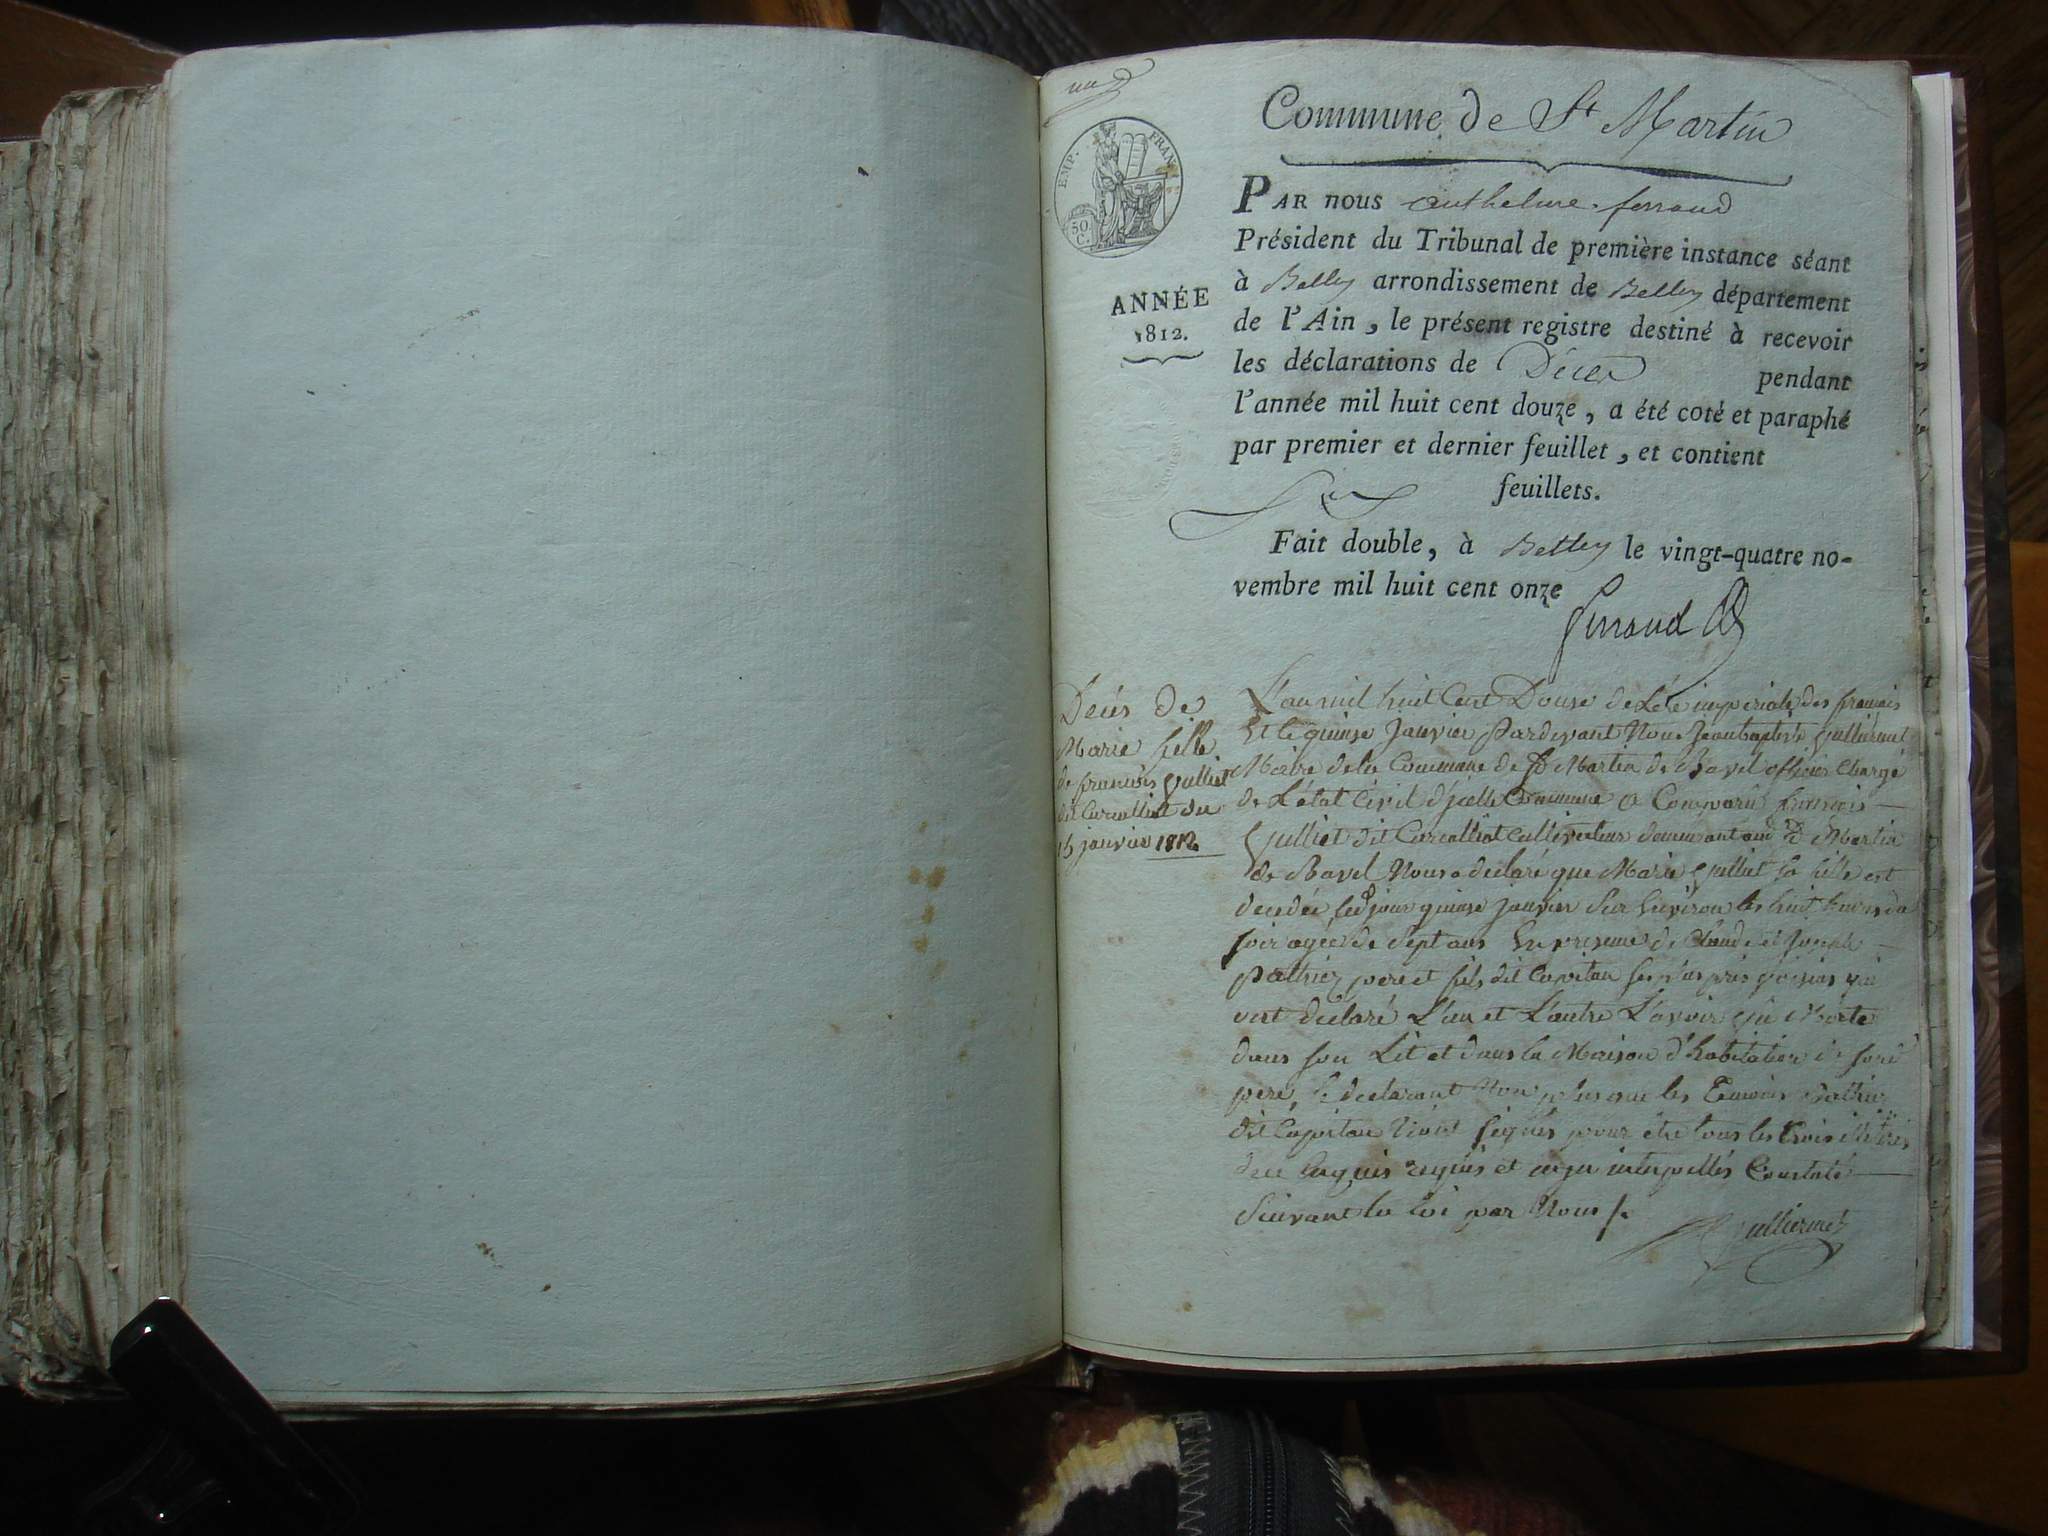 Commune de St Martin
EMP. FRAN.
50 C.
PAR nous anthelme ferraud
Président du Tribunal de première instance séant
à Belley arrondissement de Belley département
de l'Ain, le présent registre destiné à recevoir
les déclarations de Décès pendant
l'année mil huit cent douze, a été coté et paraphé
par premier et dernier feuillet, et contient
Six feuillets.
Fait double, à Belley le vingt-quatre no-
vembre mil huit cent onze
ferraud
ANNÉE
1812.
Décès de
Marie fille
de francois Gulliet
dit Curealliat du
15 janvier 1812
L'an mil huit Cent Douse de L'ére imperiale des français
Et le quinse Janvier Pardevant Nous Jeanbaptiste Gulliermet
Maire de la Commune de St Martin de Bavel officier Chargé
de L'état Civil d'jcelle Commune a Comparû francois
Gulliet dit Curealliat Cultivateur demeurant aud St Martin
de Bavel Nous a declaré que Marie Gulliet sa fille est
decedée led jour quinse Janvier Sur Environ les huit heures du
soir agée de Sept ans En presence de Claude et Joseph
Pathiez pere et fils dit Capitan ses plus près voisins qui
ont déclaré L'un et L'autre L'avoir vu Morte
dans son Lit et dans la Maison d'habitation de son
pere, le declarant Non plus que les Temoins Pathiez
dit Capitan N'ont signés pour être tous les trois illitrés
de ce Enquis requis et interpellés Constaté
Suivant la Loi par Nous
Gulliermet